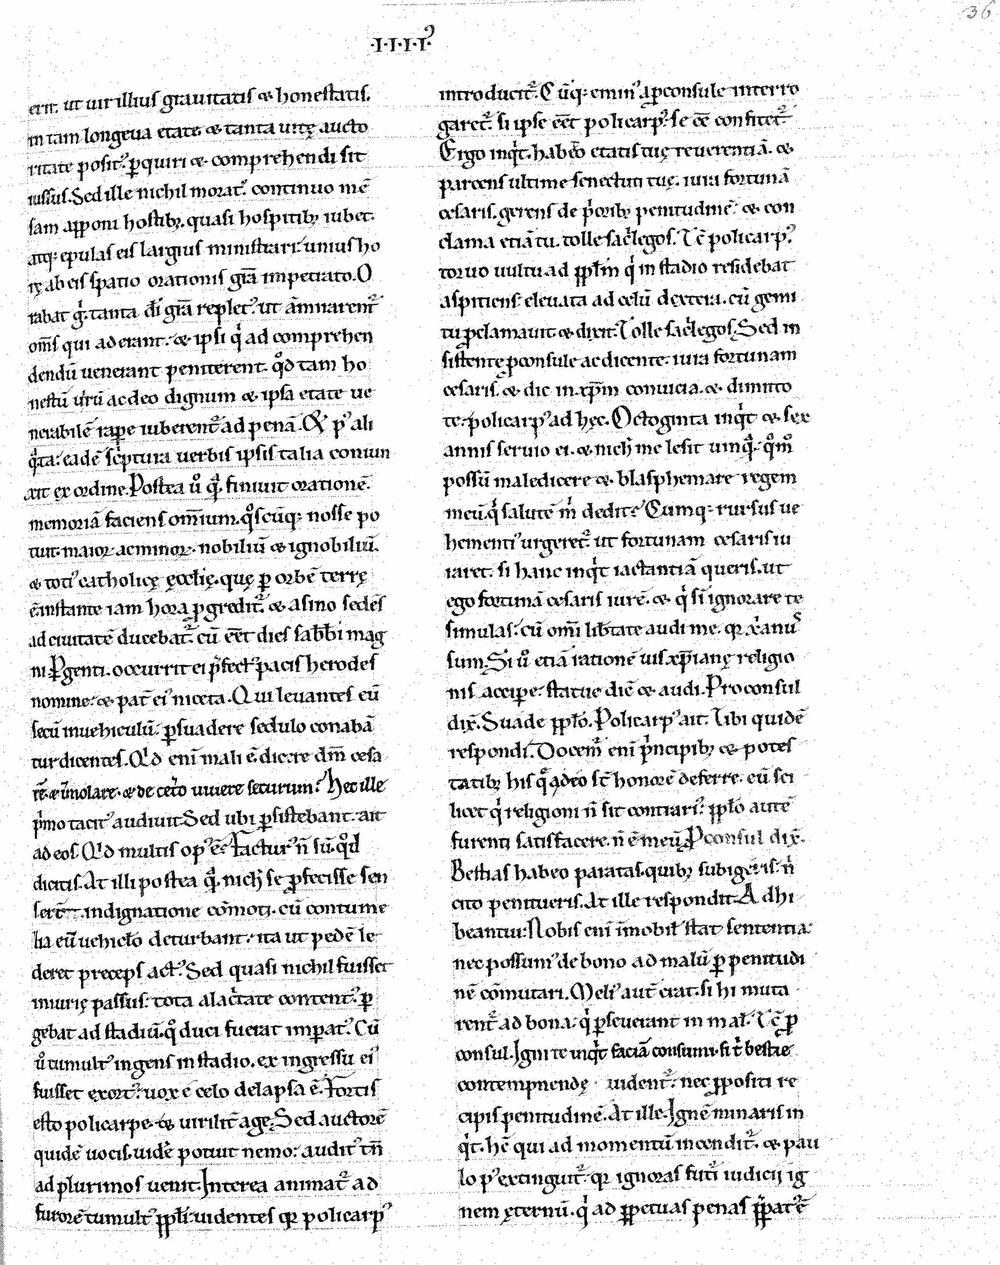 36
·I·I·I·I·
erit. ut uir illius grauitatis & honestatis.
in tam longeua etate. & tanta uitę aucto
ritate positꝰ. ꝑquiri & comprehendi sit
iussus. Sed ille nichil moratꝰ. continuo mē
sam apponi hostibꝫ. quasi hospitibꝫ iubet.
atqꝫ epulas eis largius ministrari. unius ho
rę ab eis spatio orationis grā impetrato. O
rabat g̊. tanta dī grā repletꝰ. ut āmirarent᷑
om̄s qui aderant. & ipsi qͥ ad comprehen
dendū uenerant peniterent. qd̊ tam ho
nestū uirū ac deo dignum & ipsa etate ue
nerabilē rape iuberent᷑ ad penā. & pꝰ ali
q̄ta. eadē scͥptura uerbis ipsis talia coniun
xit ex ordine. Postea ů q̄. finiuit orationē.
memoriā faciens om̄ium. qͦscūqꝫ nosse po
tuit. maioꝝ ac minoꝝ. nobiliū & ignobiliū.
& totiꝰ catholicę ęcclię. quę ꝑ orbē terrę
ē. instante iam hora ꝓgredit᷑. & asino sedēs
ad ciuitatē ducebat᷑. cū eēt dies sabbī mag
ni. Pergenti. occurrit ei p̄fectꝰ pacis herodes
nomine. & pat̄ eiꝰ niceta. Qui leuantes eū
secū in uehiculū. ꝑsuadere sedulo conabā
tur dicentes. Qͥd eni mali ē dicere dm̄ cesa
rē. & īmolare. & de cet̄o uiuere securum? Hec ille
p̄mo tacitꝰ audiuit. Sed ubi ꝑsistebant. ait
ad eos. Qͥd multis opꝰ ē. Facturꝰ n̄ sū. qd̊
dicitis. At illi postea q̄. nich̄ se ꝓfecisse sen
serē. indignatione cōmoti. cū contume
lia eū uehicl̄o deturbant. ita ut pedē le
deret preceps actꝰ. Sed quasi nichil fuisset
iniurię passus. tota alac̄tate contentꝰ. ꝑ
gebat ad stadiū. qͦ duci fuerat imꝑatꝰ. Cū
ů tumultꝰ ingens in stadio. ex ingressu eiꝰ
fuisset exortꝰ. uox e celo delapsa ē. Fortis
esto policarpe. & uirilit̄ age. Sed auctorē
quidē uocis. uidē potuit nemo. auditꝰ tn̄
ad plurimos uenit. Interea animat᷑ ad
furorē tumultꝰ ppl̄i. uidentes qꝛ policarpꝰ
introducit᷑. Cūqꝫ eminꝰ a ꝓconsule interro
garet᷑. si ipse eēt policarpꝰ. se eē confitet᷑.
Ergo inqͥt. habeto etatis tuę reuerentiā. &
parcens ultime senectuti tuę. iura fortunā
cesaris. gerens de p̄oribꝫ penitudinē. & con
clama etiā tu. tolle sac̄legos. Tc̄ policarpꝰ.
toruo uultu ad ppl̄m qͥ in stadio residebat
aspitiens. eleuata ad celū dextera. cū gemi
tu ꝓclamauit & dixit. Tolle sac̄legos. Sed in
sistente ꝓconsule ac dicente. iura fortunam
cesaris. & dic in xp̄m conuicia. & dimitto
te. policarpꝰ ad hęc. Octoginta inqͥt & sex
annis seruio ei. & nich̄ me lesit umq̄. qͦm̄
possū maledicere & blasphemare regem
meū. qͥ salutē m̄ dedit? Cumqꝫ rursus ue
hementiꝰ urgeret᷑. ut fortunam cesaris iu
raret. si hanc inqͥt iactantiā queris. ut
ego fortunā cesaris iurē. & qͥ si ignorare te
simulas. cū om̄i lib̄tate audi me. qꝛ xānꝰ
sum. Si ů etiā rationē uis xp̄ianę religio
nis accipe. statue diē & audi. Proconsul
dix̄. Suade ppl̄o. Policarpꝰ ait. Tibi quidē
respondi. Docem̄ eni p̄ncipibꝫ & potes
tatibꝫ his quę a deo st̄ honorē deferre. eū sci
licet qͥ religioni n̄ sit contrariꝰ. ppl̄o autē
furenti satisfacere. n̄ ē meū. Pconsul dix̄.
Bestias habeo paratas. quibꝫ subigeris. n̄
cito penitueris. At ille respondit. Adhi
beantur. Nobis eni īmobil̄ stat sententia.
nec possumꝰ de bono ad malū ꝑ penitudi
nē cōmutari. Meliꝰ aut̄ erat. si hi muta
rent᷑ ad bona. qͥ ꝑseuerant in malꝭ. Tc̄ ꝓ
consul. Igni te inqͥt faciā consumi. si t̄ bestie
contempnendę uident᷑. nec ꝓpositi re
cipis penitudinē. At ille. Ignē minaris in
qͥt. hc̄ qui ad momentū incendit᷑. & pau
lo pꝰ extinguit᷑. qꝛ ignoras futͥ iudicij ig
nem ęternū. qͥ ad ꝑpetuas penas p̄patꝰ ē